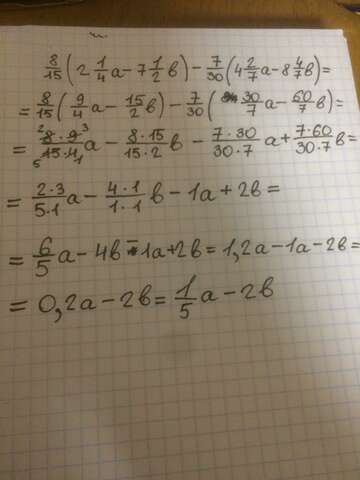 8/15(2 1/4a-7 1/2в)-7/30(4 2/7a-8 4/7в)=
=8/15(9/4a-15/2в)-7/30(30/7a-60/7в)=
=8·9/15·4a-8·15/15·2в-7·30/30·7a+7·60/30·7в=
=2·3/5·1a-4·1/1·1в-1a+2в=
=6/5a-4в-1a+2в=1,2a-1a-2в=
=0,2a-2в=1/5a-2в